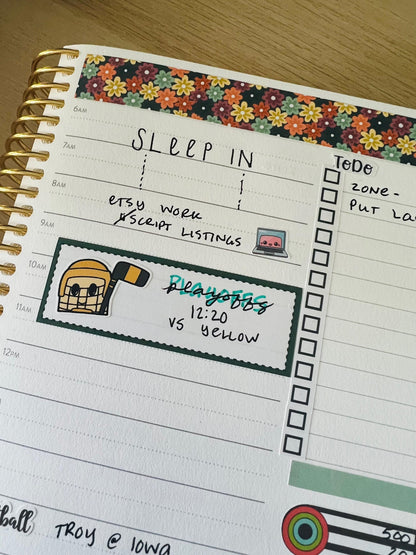 6AM
SLEEP IN
7AM
8AM
etsy work
script listings
9AM
10AM
PLAYOFFS
playoffs
12:20
vs yellow
11AM
12PM
ball
TROY @ IOWA
ToDo
ZONE-
PUT
500